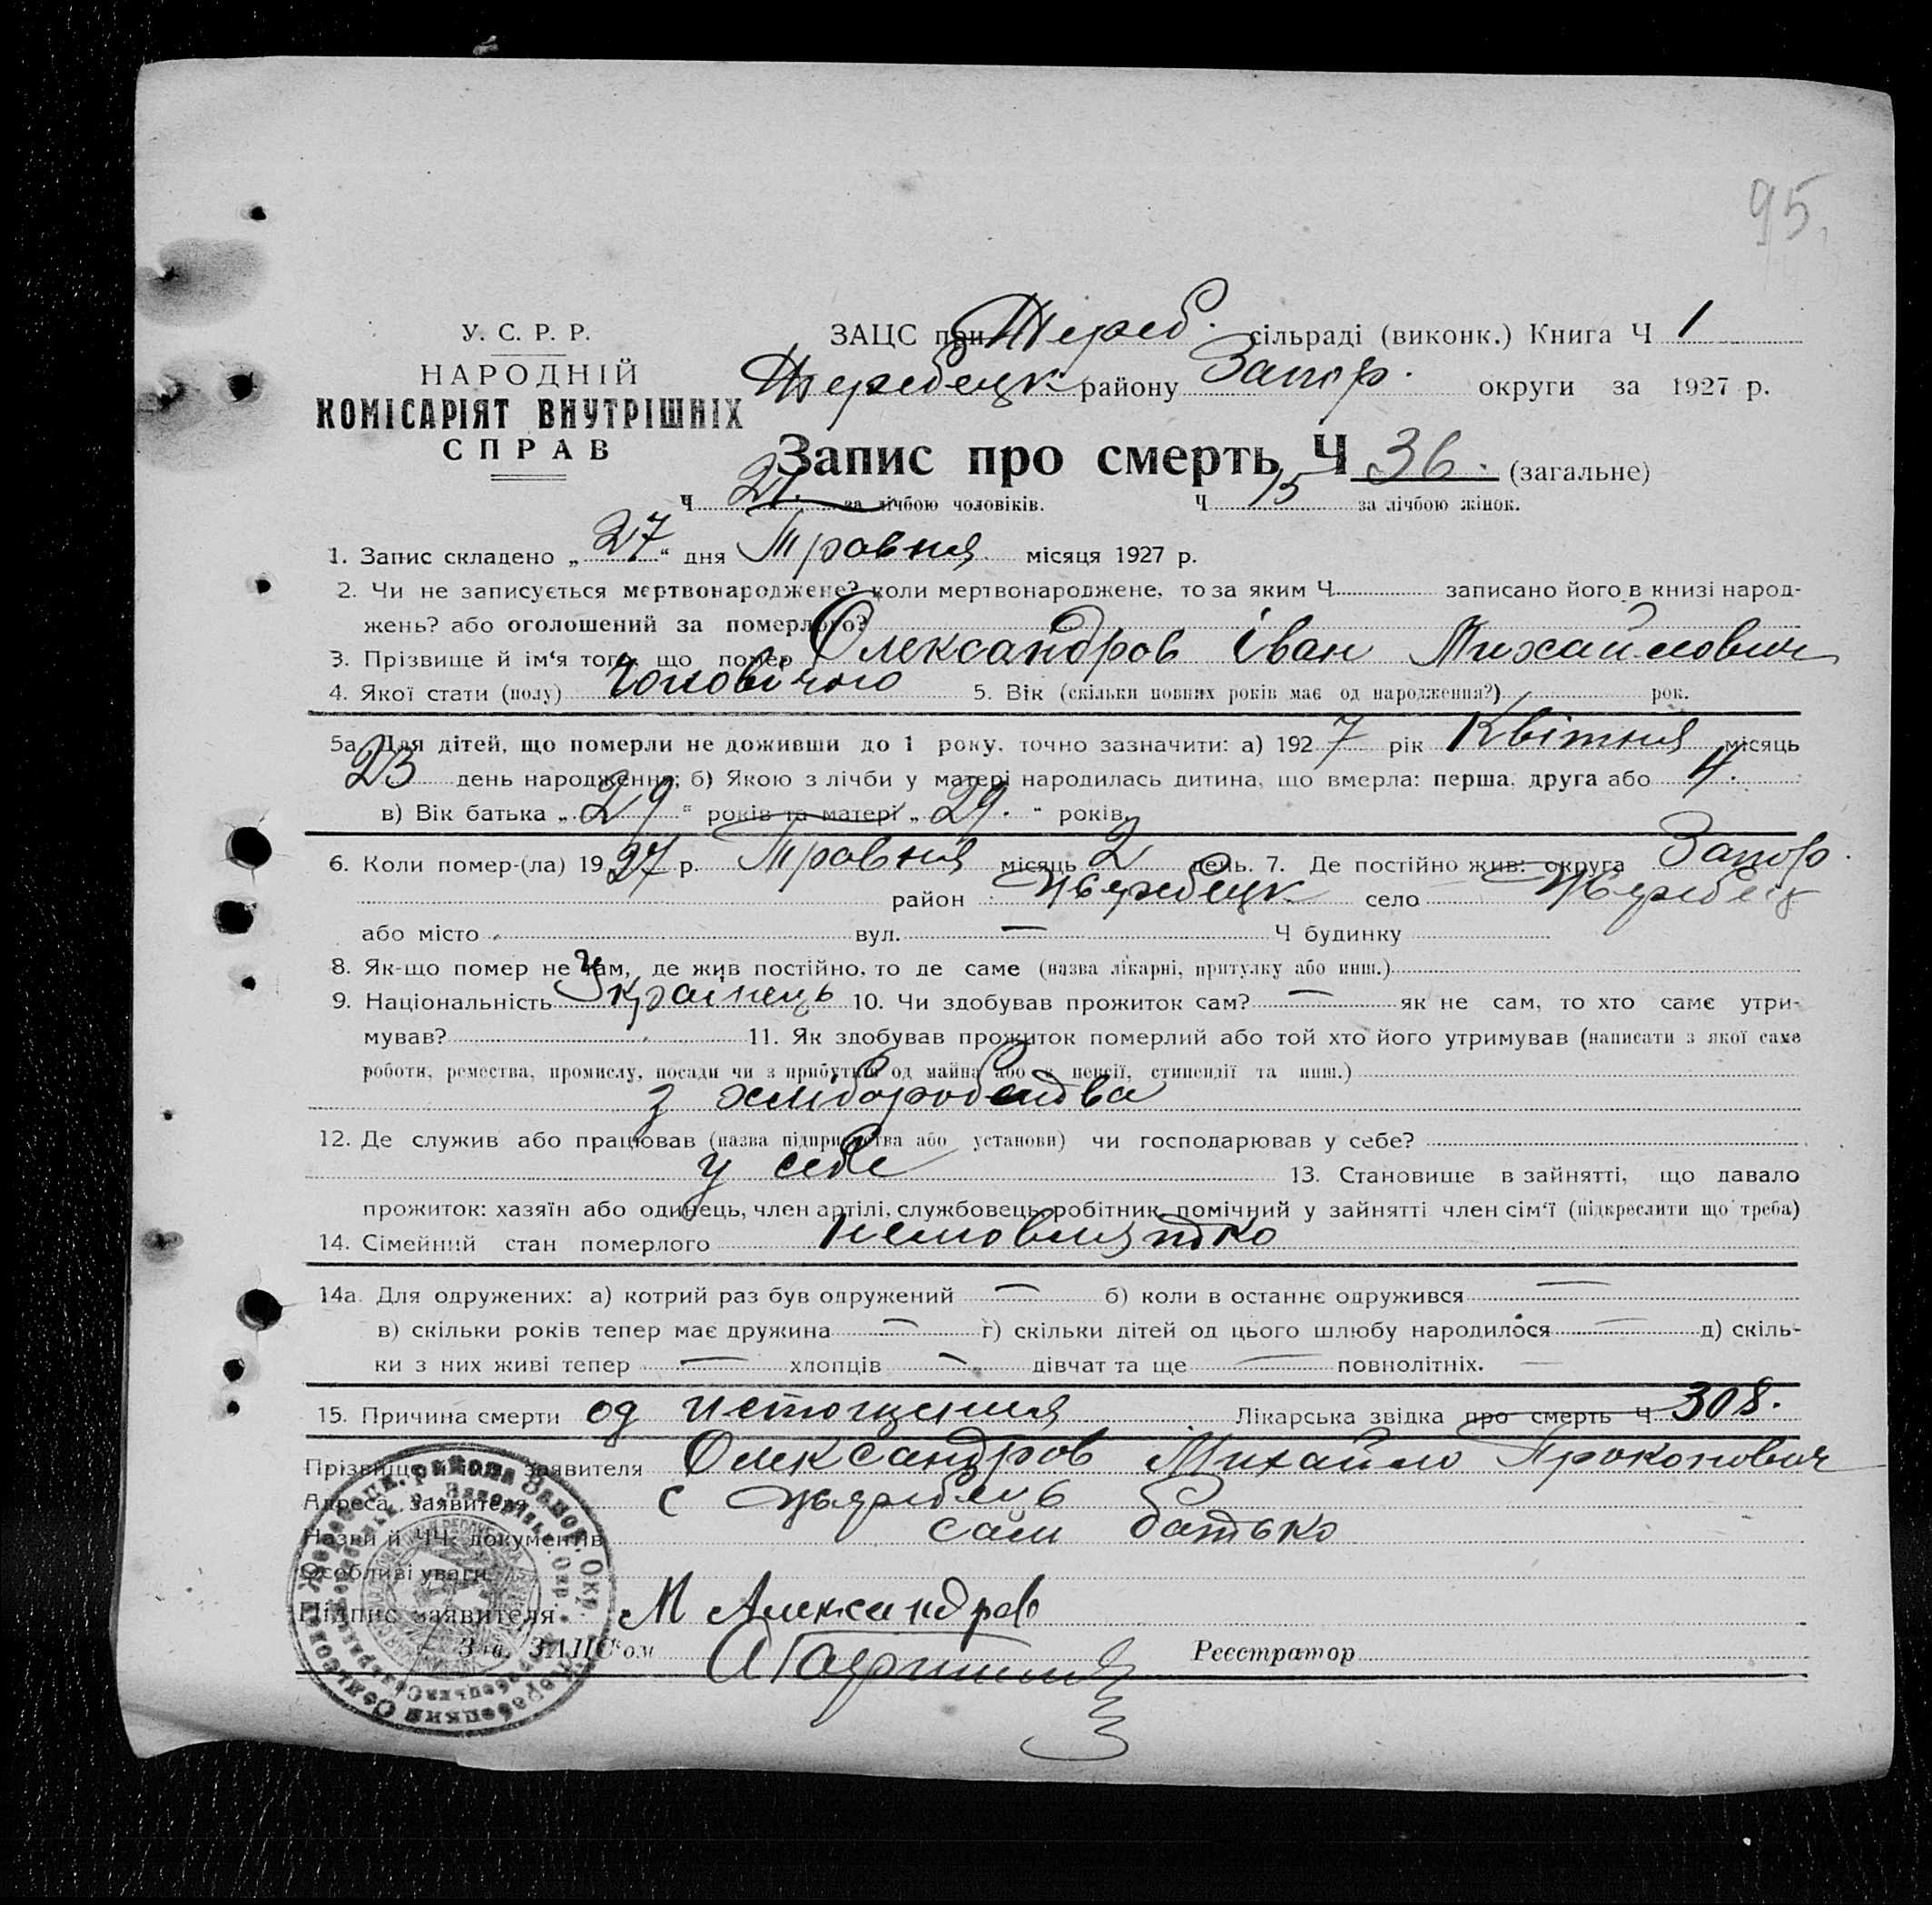 95
У. С. Р. Р.
НАРОДНІЙ
КОМІСАРІЯТ ВНУТРІШНІХ
СПРАВ
ЗАЦС при Жереб. сільраді (виконк.) Книга Ч 1
Жеребецк. району Запор. округи за 1927 р.
Запис про смерть Ч 36. (загальне)
Ч 21. за лічбою чоловіків. Ч 15 за лічбою жінок.
1. Запис складено „27“ дня Травня місяця 1927 р.
2. Чи не записується мертвонароджене? коли мертвонароджене, то за яким Ч записано його в книзі народ-
жень? або оголошений за померлого?
3. Прізвище й ім'я того, що помер Олександров Іван Михайлович
4. Якої стати (полу) Чоловічого 5. Вік (скільки повних років має од народження?) рок.
5а. Для дітей, що померли не доживши до 1 року, точно зазначити: а) 1927 рік Квітня місяць
23 день народження; б) Якою з лічби у матері народилась дитина, що вмерла: перша, друга або 4.
в) Вік батька „29“ років та матері „29.“ років.
6. Коли помер-(ла) 1927 р. Травня місяць 2 день. 7. Де постійно жив: округа Запор.
район Жеребецк. село Жеребец
або місто вул. — Ч будинку
8. Як-що помер не там, де жив постійно, то де саме (назва лікарні, притулку або инш.)
9. Національність Українець 10. Чи здобував прожиток сам? — як не сам, то хто саме утри-
мував? 11. Як здобував прожиток померлий або той хто його утримував (написати з якої саме
роботи, ремества, промислу, посади чи з прибутків од майна або з пенсії, стипендії та инш.)
з хліборобства
12. Де служив або працював (назва підприємства або установи) чи господарював у себе?
у себе 13. Становище в зайнятті, що давало
прожиток: хазяїн або одинець, член артілі, службовець, робітник, помічний у зайнятті член сім'ї (підкреслити що треба)
14. Сімейний стан померлого немовлятко
14а. Для одружених: а) котрий раз був одружений — б) коли в останнє одружився —
в) скільки років тепер має дружина — г) скільки дітей од цього шлюбу народилося — д) скіль-
ки з них живі тепер — хлопців — дівчат та ще — повнолітніх. —
15. Причина смерти од истощения Лікарська звідка про смерть Ч 308.
Прізвище й ім'я заявителя Олександров Михайло Прокопович
Адреса заявителя с Жеребець
Назви й ЧЧ документів сам батько
Особливі уваги
Підпис заявителя М Александров
Зав. ЗАЦСом Реєстратор